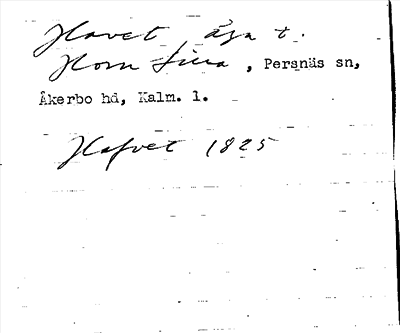 Havet, äga t.
Horn Lilla, Persnäs sn,
Åkerbo hd, Kalm. l.
Hafvet 1825